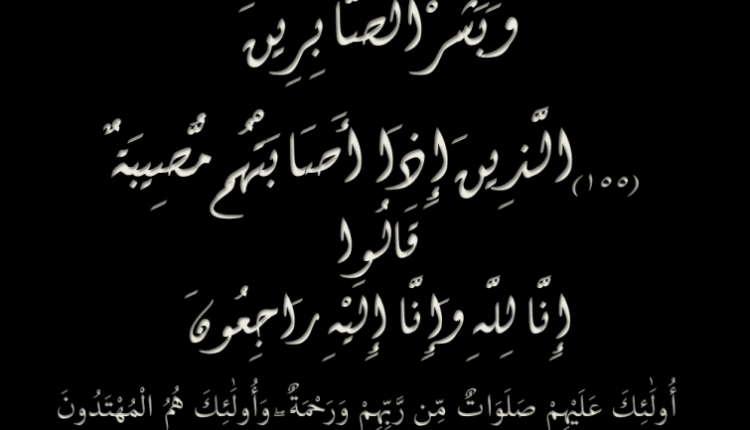 وَبَشِّرِ الصَّابِرِينَ
(١٥٥) الَّذِينَ إِذَا أَصَابَتْهُم مُّصِيبَةٌ
قَالُوا
إِنَّا لِلَّهِ وَإِنَّا إِلَيْهِ رَاجِعُونَ
أُولَٰئِكَ عَلَيْهِمْ صَلَوَاتٌ مِّن رَّبِّهِمْ وَرَحْمَةٌ ۖ وَأُولَٰئِكَ هُمُ الْمُهْتَدُونَ